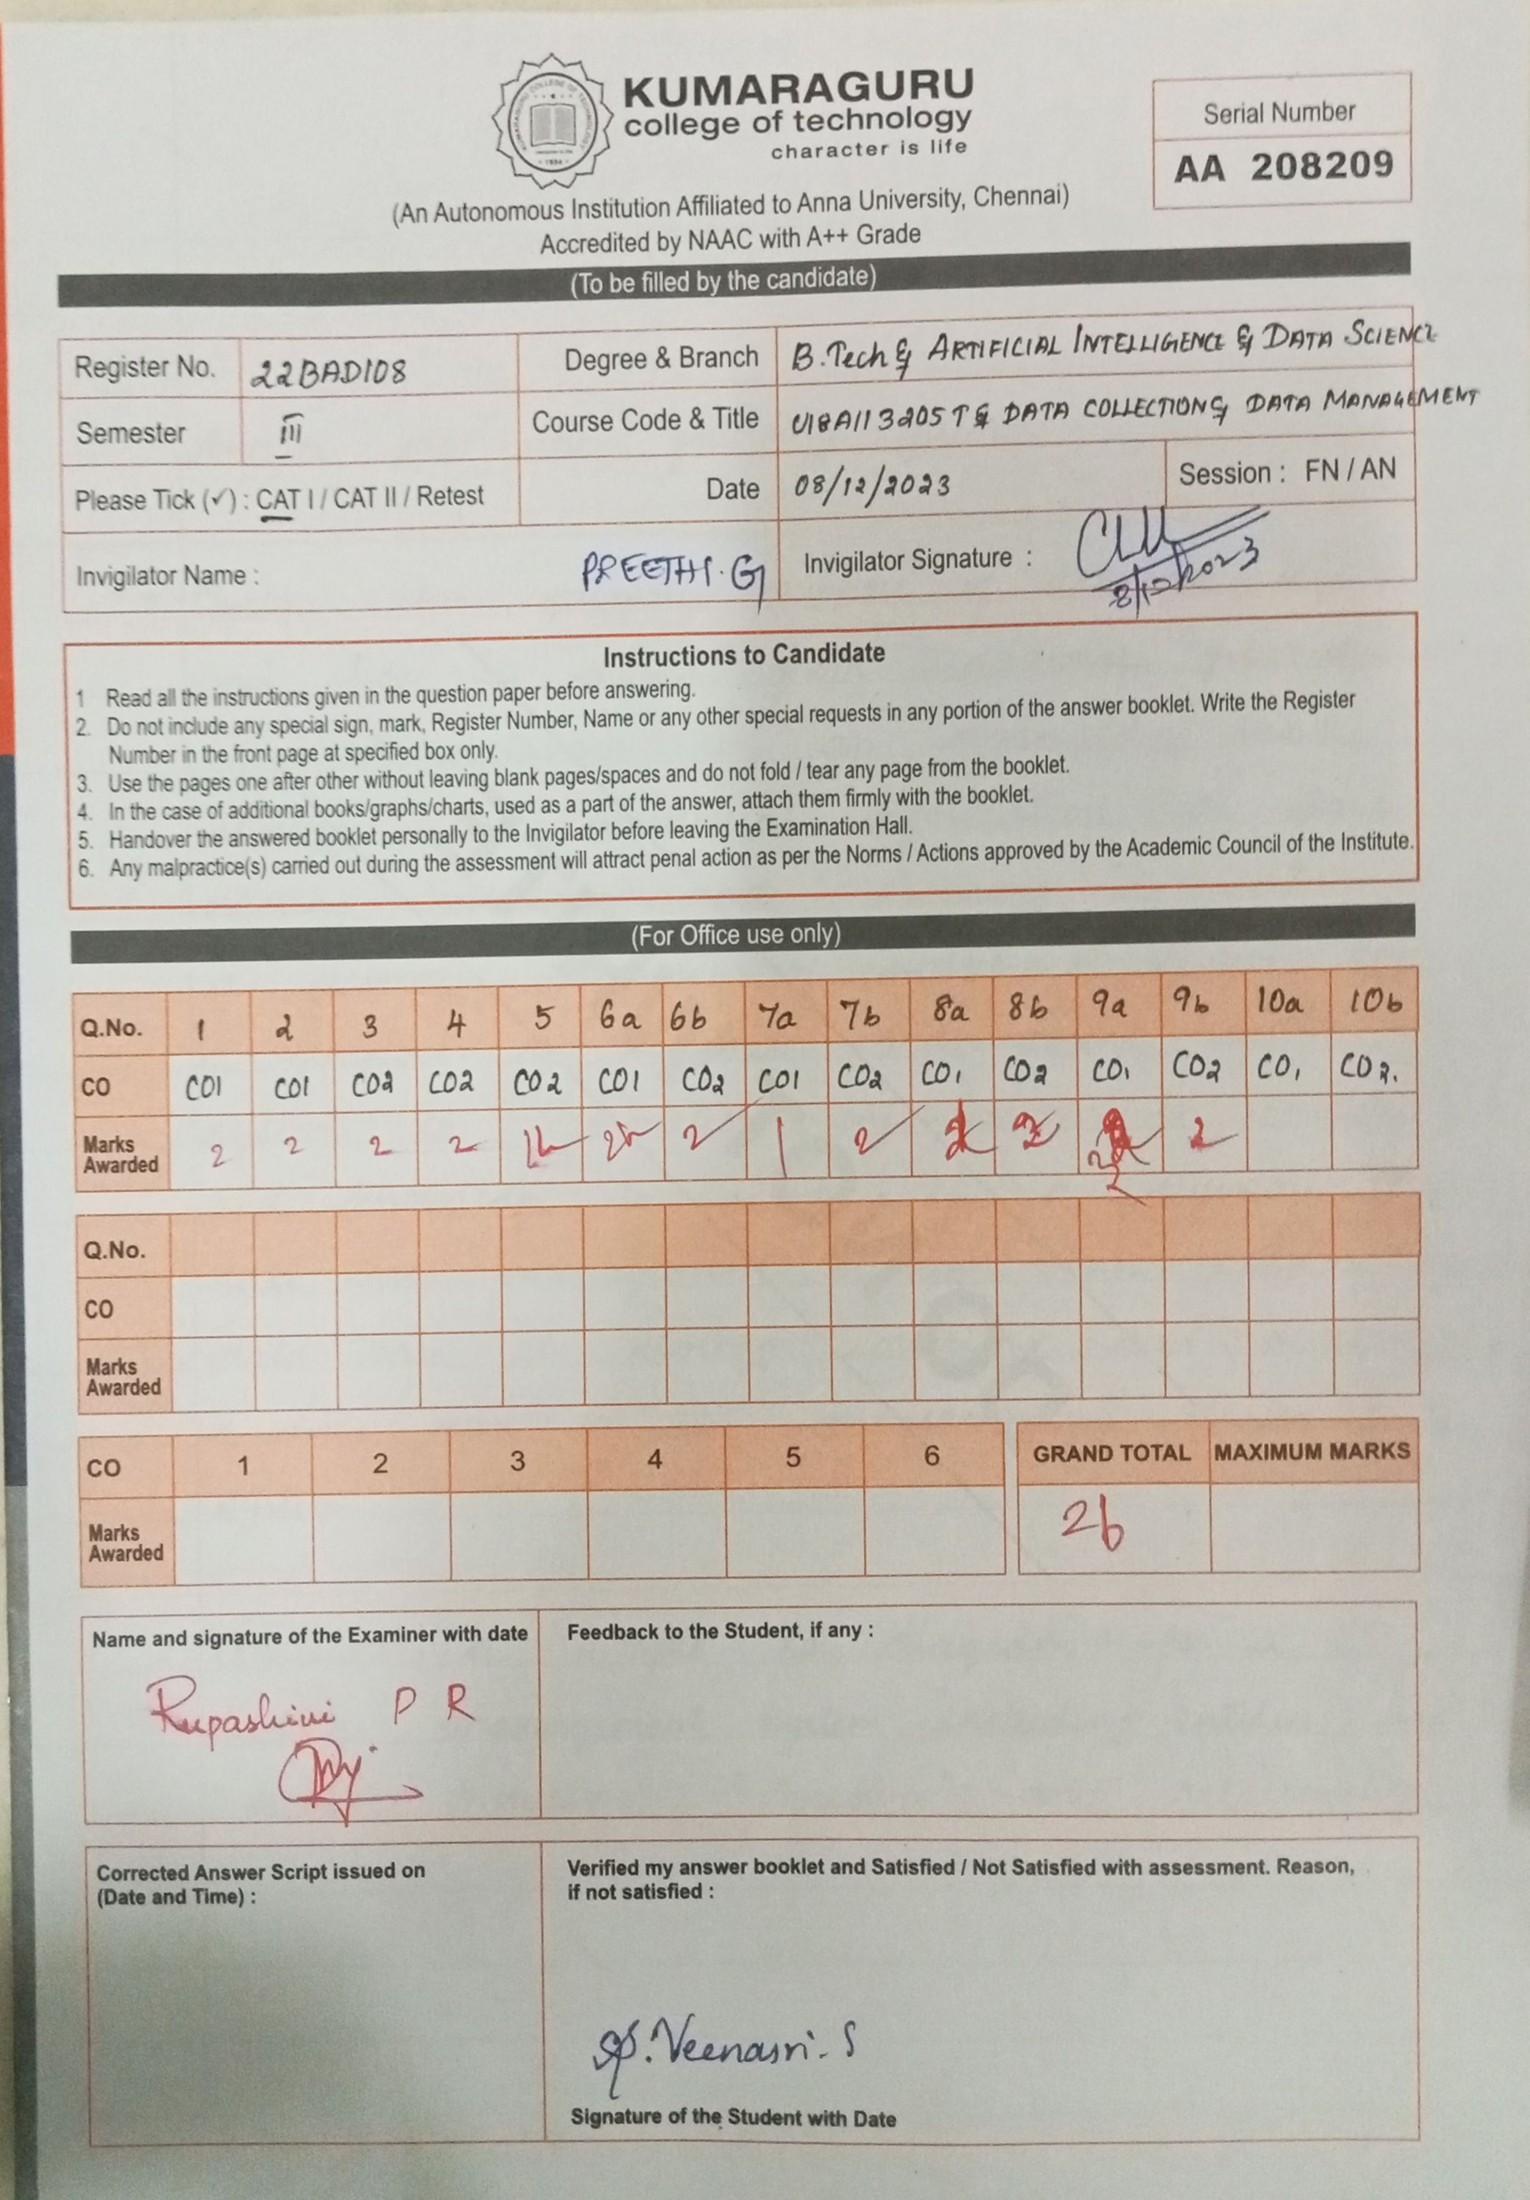 KUMARAGURU
college of technology
character is life
Serial Number
AA 208209
(An Autonomous Institution Affiliated to Anna University, Chennai)
Accredited by NAAC with A++ Grade
(To be filled by the candidate)
Register No. 22BAD108 Degree & Branch B.Tech & ARTIFICIAL INTELLIGENCE & DATA SCIENCE
Semester III Course Code & Title U18AII3205T & DATA COLLECTION & DATA MANAGEMENT
Please Tick (✓) : CAT I / CAT II / Retest Date 08/12/2023 Session : FN / AN
Invigilator Name : PREETHI.G Invigilator Signature :
8/12/2023
Instructions to Candidate
1 Read all the instructions given in the question paper before answering.
2. Do not include any special sign, mark, Register Number, Name or any other special requests in any portion of the answer booklet. Write the Register
Number in the front page at specified box only.
3. Use the pages one after other without leaving blank pages/spaces and do not fold / tear any page from the booklet.
4. In the case of additional books/graphs/charts, used as a part of the answer, attach them firmly with the booklet.
5. Handover the answered booklet personally to the Invigilator before leaving the Examination Hall.
6. Any malpractice(s) carried out during the assessment will attract penal action as per the Norms / Actions approved by the Academic Council of the Institute.
(For Office use only)
Q.No. 1 2 3 4 5 6a 6b 7a 7b 8a 8b 9a 9b 10a 10b
CO CO1 CO1 CO2 CO2 CO2 CO1 CO2 CO1 CO2 CO1 CO2 CO1 CO2 CO1 CO2.
Marks
Awarded 2 2 2 2 2 1 2 2 2
Q.No.
CO
Marks
Awarded
CO 1 2 3 4 5 6 GRAND TOTAL MAXIMUM MARKS
Marks
Awarded 26
Name and signature of the Examiner with date
Rupashini P R
Feedback to the Student, if any :
Corrected Answer Script issued on
(Date and Time) :
Verified my answer booklet and Satisfied / Not Satisfied with assessment. Reason,
if not satisfied :
Veenasri. S
Signature of the Student with Date